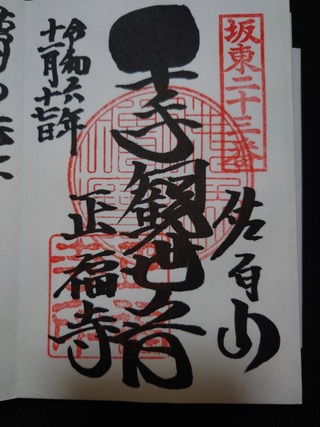 坂東二十三番
佐白山
千手観世音
正福寺
令和六年
十一月十七日